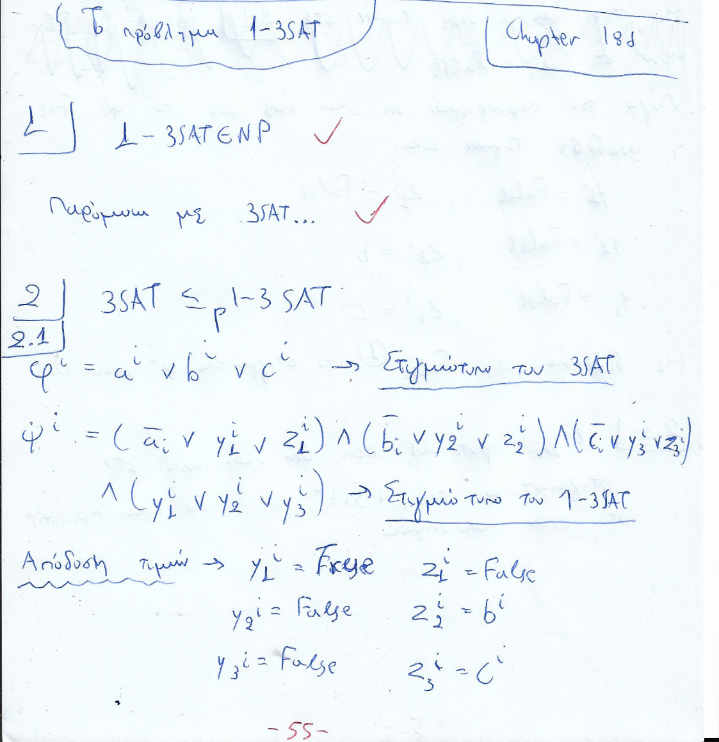 Το πρόβλημα 1-3SAT
Chapter 18d
1
1-3SAT ∈ NP ✓
Παρόμοια με 3SAT... ✓
2 3SAT ≤p 1-3 SAT
2.1
φ^i = a^i ∨ b^i ∨ c^i → Στιγμιότυπο του 3SAT
ψ^i = (ā_i ∨ y_1^i ∨ z_1^i) ∧ (b̄_i ∨ y_2^i ∨ z_2^i) ∧ (c̄_i ∨ y_3^i ∨ z_3^i)
∧ (y_1^i ∨ y_2^i ∨ y_3^i) → Στιγμιότυπο του 1-3SAT
Απόδοση τιμών → y_1^i = z_1^i = False
y_2^i = False z_2^i = b^i
y_3^i = False z_3^i = c^i
-55-